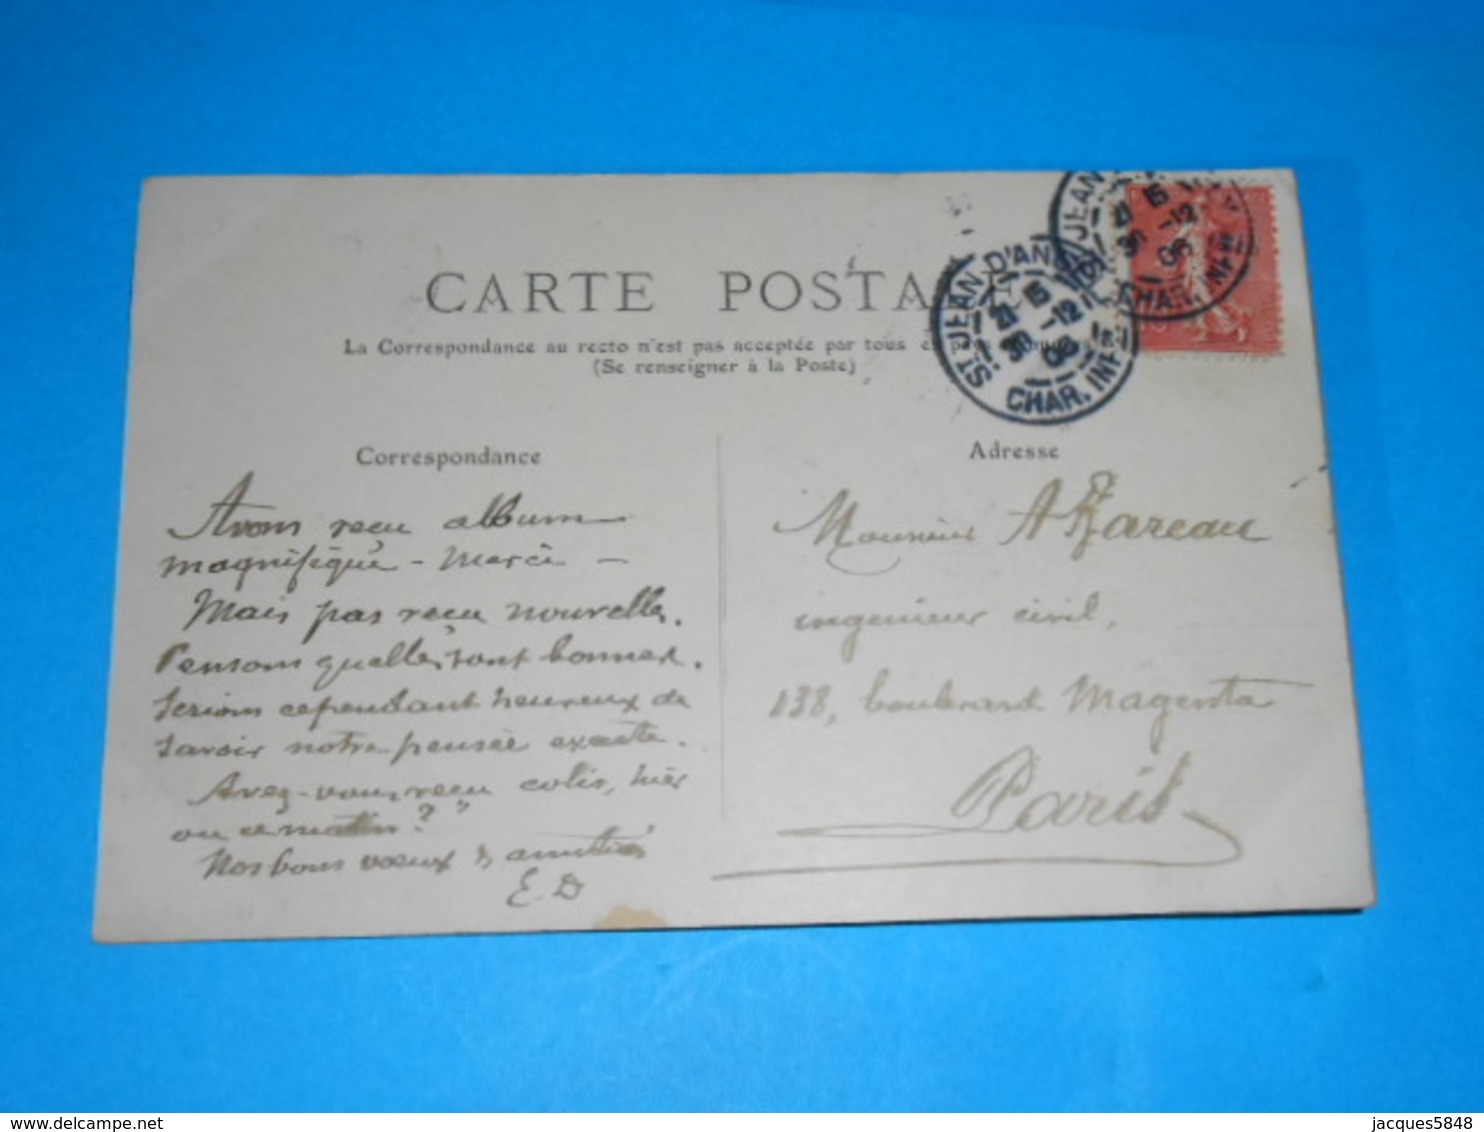 CARTE POSTALE
La Correspondance au recto n'est pas acceptée par tous
(Se renseigner à la Poste)
ST JEAN D'ANG
21 15
30 -12
06
CHAR. INFRE
JEAN
21 15
30 -12
06
CHAR. INFRE
Correspondance
Avons reçu album
magnifique - Merci -
Mais pas reçu nouvelles.
Pensons qu'elles sont bonnes.
Serions cependant heureux de
savoir notre pensée exacte.
Avez-vous reçu colis, hier
ou ce matin ?
Nos bons vœux & amitiés
E. D
Adresse
Monsieur A Bareau
ingénieur civil,
138, boulevard Magenta
Paris
jacques5848